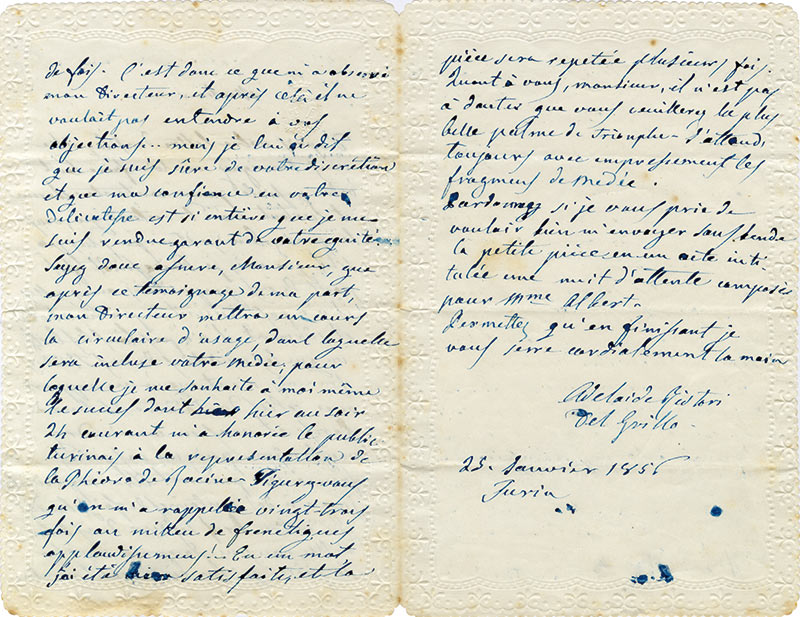 de fois. C'est donc ce que m'a observé
mon Directeur, et après cela il ne
voulait pas entendre à vos
objections... mais je lui ai dit
que je suis sûre de votre discrétion
et que ma confience en votre
Délicatesse est si entière que je me
suis rendue garant de votre
Soyez donc assuré, Monsieur, que
après ce témoignage de ma part,
mon Directeur mettra en cours
la circulaire d'usage, dans laquelle
sera incluse votre Medée, pour
laquelle je me souhaite à moi même
le succès dont hier au soir
24 courant m'a honorée le public
turinais à la representation de
la Phédre de Racine. Figurez-vous
qu'on m'a rappelée vingt-trois
fois au milieu de frenetiques
applaudissemens! - En un mot,
j'ai été satisfaite, et la
pièce sera repetée plusieurs fois.
Quant à vous, monsieur, il n'est pas
à douter que vous cueillerez la plus
belle palme de Triomphe - J'attends
toujours avec empressement les
fragmens de Medée.
Pardonnez si je vous prie de
vouloir bien m'envoyer sous bande
la petite pièce en un acte inti-
tulée une nuit d'attente composée
pour Mme Albert.
Permettez qu'en finissant je
vous serre cordialement la main
Adelaide Ristori
Del Grillo
25. Janvier 1856
Turin